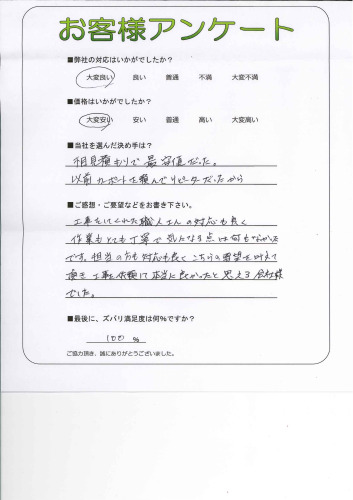 お客様アンケート
■弊社の対応はいかがでしたか?
大変良い 良い 普通 不満 大変不満
■価格はいかがでしたか?
大変安い 安い 普通 高い 大変高い
■当社を選んだ決め手は?
相見積もりで最安値だった。
以前カーポートを頼んでリピーターだったから
■ご感想・ご要望などをお書き下さい。
工事をしてくれた職人さんの対応も良く
作業もとても丁寧で気になる点は何もなかった
です。担当の方も対応も良くこちらの要望を叶えて
頂き工事を依頼して本当に良かったと思える会社様
でした。
■最後に、ズバリ満足度は何%ですか?
100 %
ご協力頂き、誠にありがとうございました。